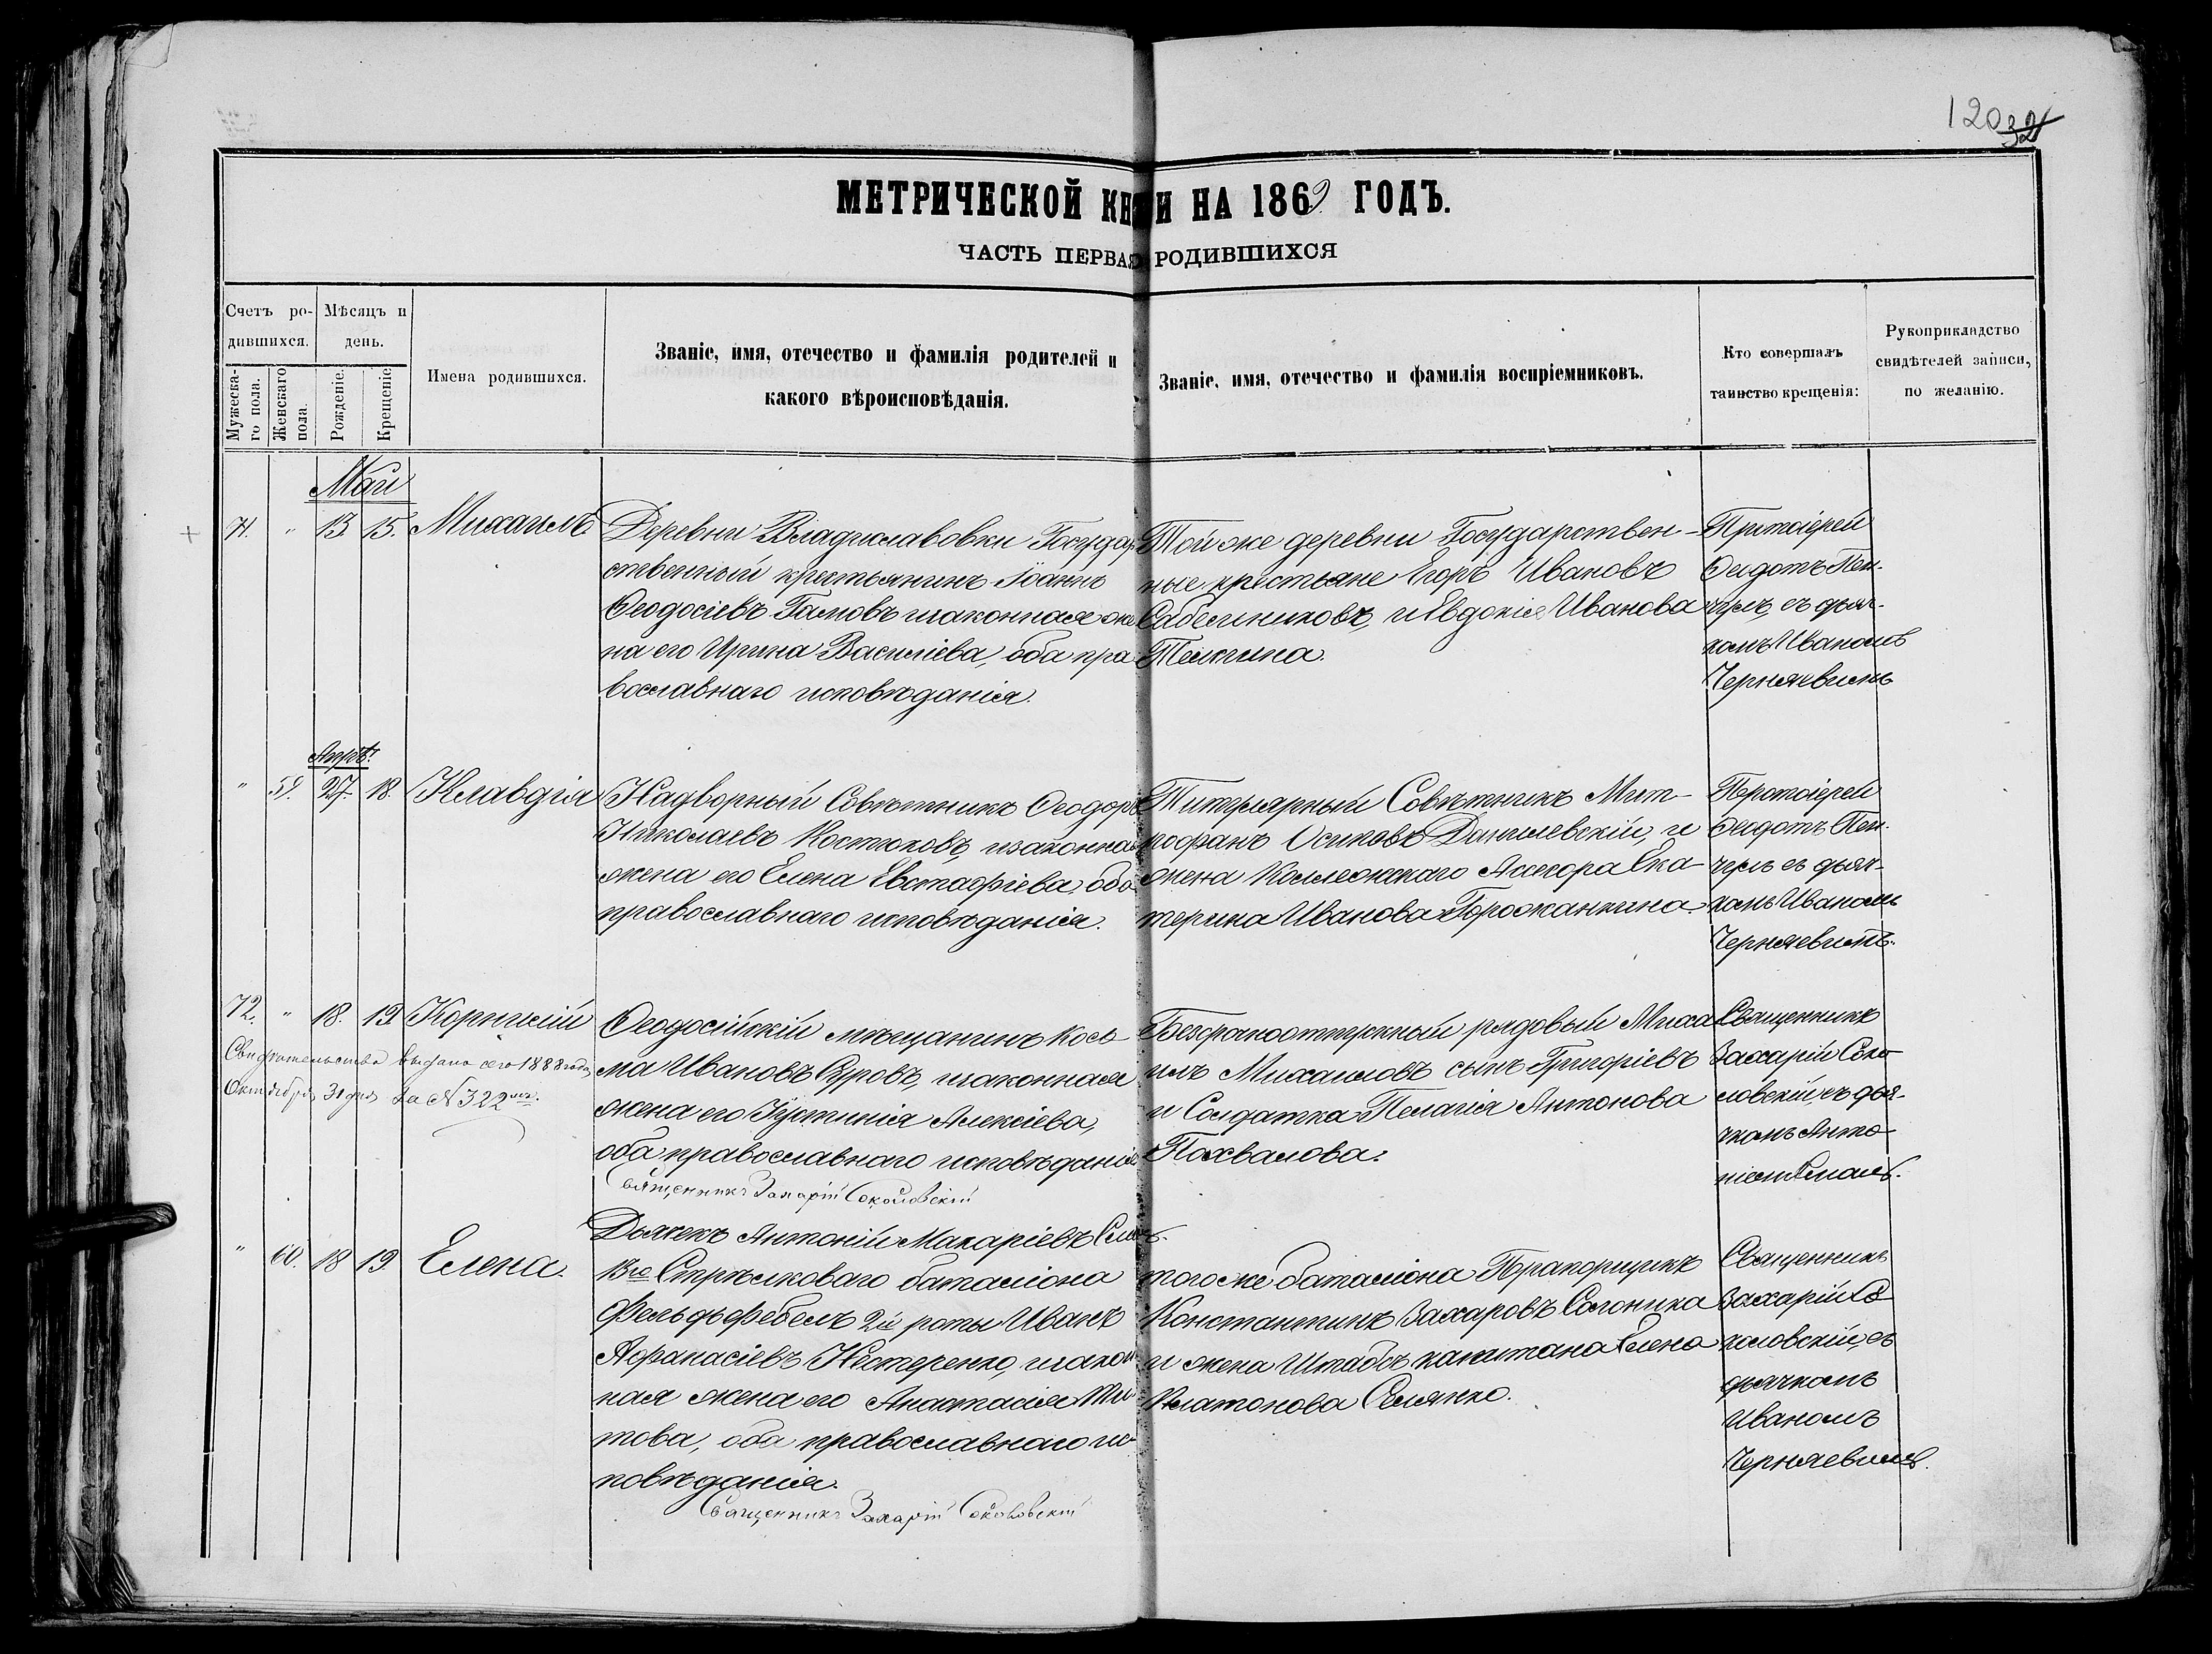 120 32
МЕТРИЧЕСКОЙ КНИ И НА 1869 ГОДЪ.
ЧАСТЬ ПЕРВАЯ РОДИВШИХСЯ
Счетъ ро-
дившихся.
Мужеска-
го пола.
Женскаго
пола.
Мѣсяцъ и
день.
Рожденіе.
Крещеніе
Имена родившихся.
Званіе, имя, отечество и фамилія родителей и
какого вѣроисповѣданія.
Званіе, имя, отечество и фамилія воспріемниковъ.
Кто совершалъ
таинство крещенія:
Рукоприкладство
свидѣтелей записи,
по желанію.
Май
71. " 13. 15. Михаилъ
Деревни Владиславовки Государ-
ственный крестьянинъ Іоаннъ
Ѳеодосіевъ Гамовъ изаконная же
на его Ирина Василіева, оба пра
вославнаго исповѣданія.
Той же деревни Государствен-
ные крестьяне Егоръ Ивановъ
Сабельниковъ, и Евдокія Иванова
Протоіерей
Ѳедотъ Пен-
чулъ, съ дьяч-
комъ Иваномъ
Чернявскимъ
Апрѣл.
" 59. 27. 18. Клавдія
Надворный Совѣтникъ Ѳеодоръ
Николаевъ Костюковъ, изаконная
жена его Елена Евстафіева, оба
православнаго исповѣданія.
Титулярный Совѣтникъ Мит-
рофанъ Осиповъ Данилевскій, и
жена Коллежскаго Асесора Ека-
терина Иванова Горожанкина.
Протоіерей
Ѳедотъ Пен-
чулъ съ дьяч-
комъ Иваномъ
Чернявскимъ.
72. " 18. 19. Корнилій
Свидѣтельство выдано сего 1888 года
Октября 31 дня за № 322мъ.
Ѳеодосійскій мѣщанинъ Кось-
ма Ивановъ Суровъ, изаконная
жена его Іустинія Алексіева,
оба православнаго исповѣданія
Священникъ Захарій Соколовскій
Дьячекъ Антоній Макаріевъ
Безсрочноотпускный рядовый Миха
илъ Михаиловъ сынъ Григоріевъ
и Солдатка Пелагія Антонова
Похвалова.
Священникъ
Захарій Соко
ловскій, съ дья-
чкомъ Анто-
ніемъ
" 60. 18 19. Елена.
13го Стрѣлковаго баталіона
Фельдфебель 2й роты Иванъ
Афанасіевъ Нестеренко, изакон-
ная жена его Анастасія Ти-
това, оба православнаго ис-
повѣданія.
Священникъ Захарій Соколовскій
того же баталіона Прапорщикъ
Константинъ Захаровъ Солоника
и жена Штабсъ капитана Елена
Платонова
Священникъ
Захарій Со
коловскій, съ
дьячкомъ
Иваномъ
Чернявскимъ.